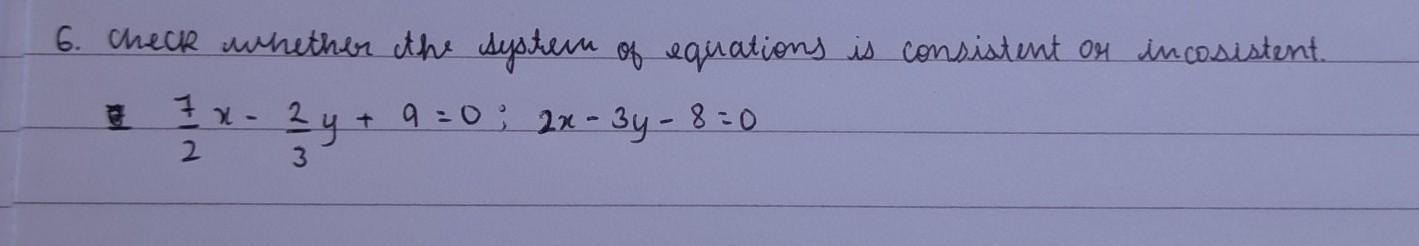 6. Check whether the system of equations is consistent or incosistent.
7/2 x - 2/3 y + 9 = 0 ; 2x - 3y - 8 = 0